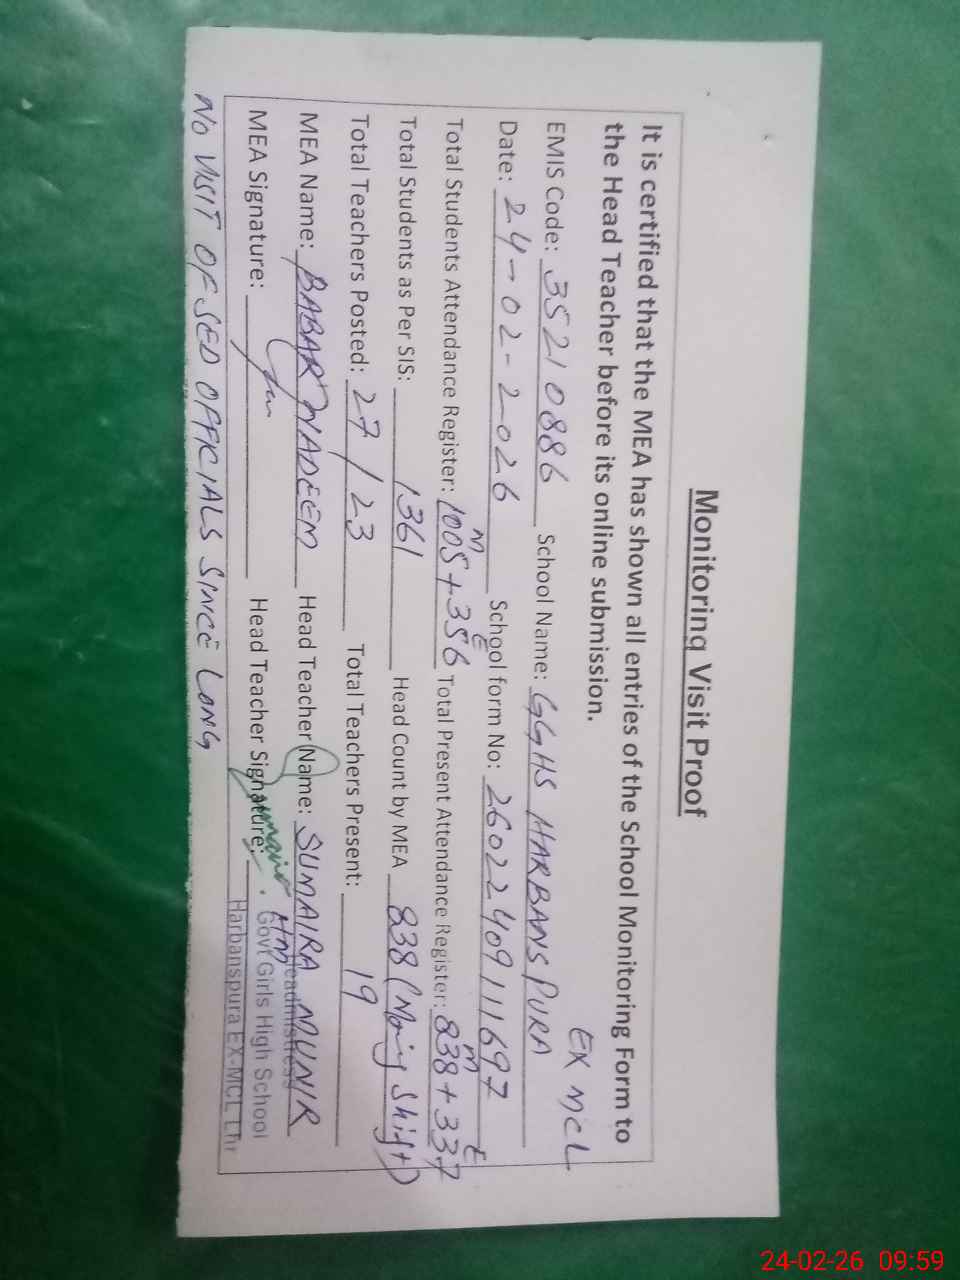 Monitoring Visit Proof
It is certified that the MEA has shown all entries of the School Monitoring Form to
the Head Teacher before its online submission.
EX MCL
EMIS Code: 35210886 School Name: GGHS HARBANSPURA
Date: 24-02-2026 School form No: 26022409111697
M E M E
Total Students Attendance Register: 1005+356 Total Present Attendance Register: 838+337
Total Students as Per SIS: 1361 Head Count by MEA 838 (Morning Shift)
Total Teachers Posted: 27/23 Total Teachers Present: 19
MEA Name: BABAR NADEEM Head Teacher Name: SUMAIRA MUNIR
HM Headmistress
MEA Signature: Head Teacher Signature: Govt Girls High School
Harbanspura EX-MCL Lhr
NO VISIT OF SED OFFICIALS SINCE LONG
24-02-26 09:59